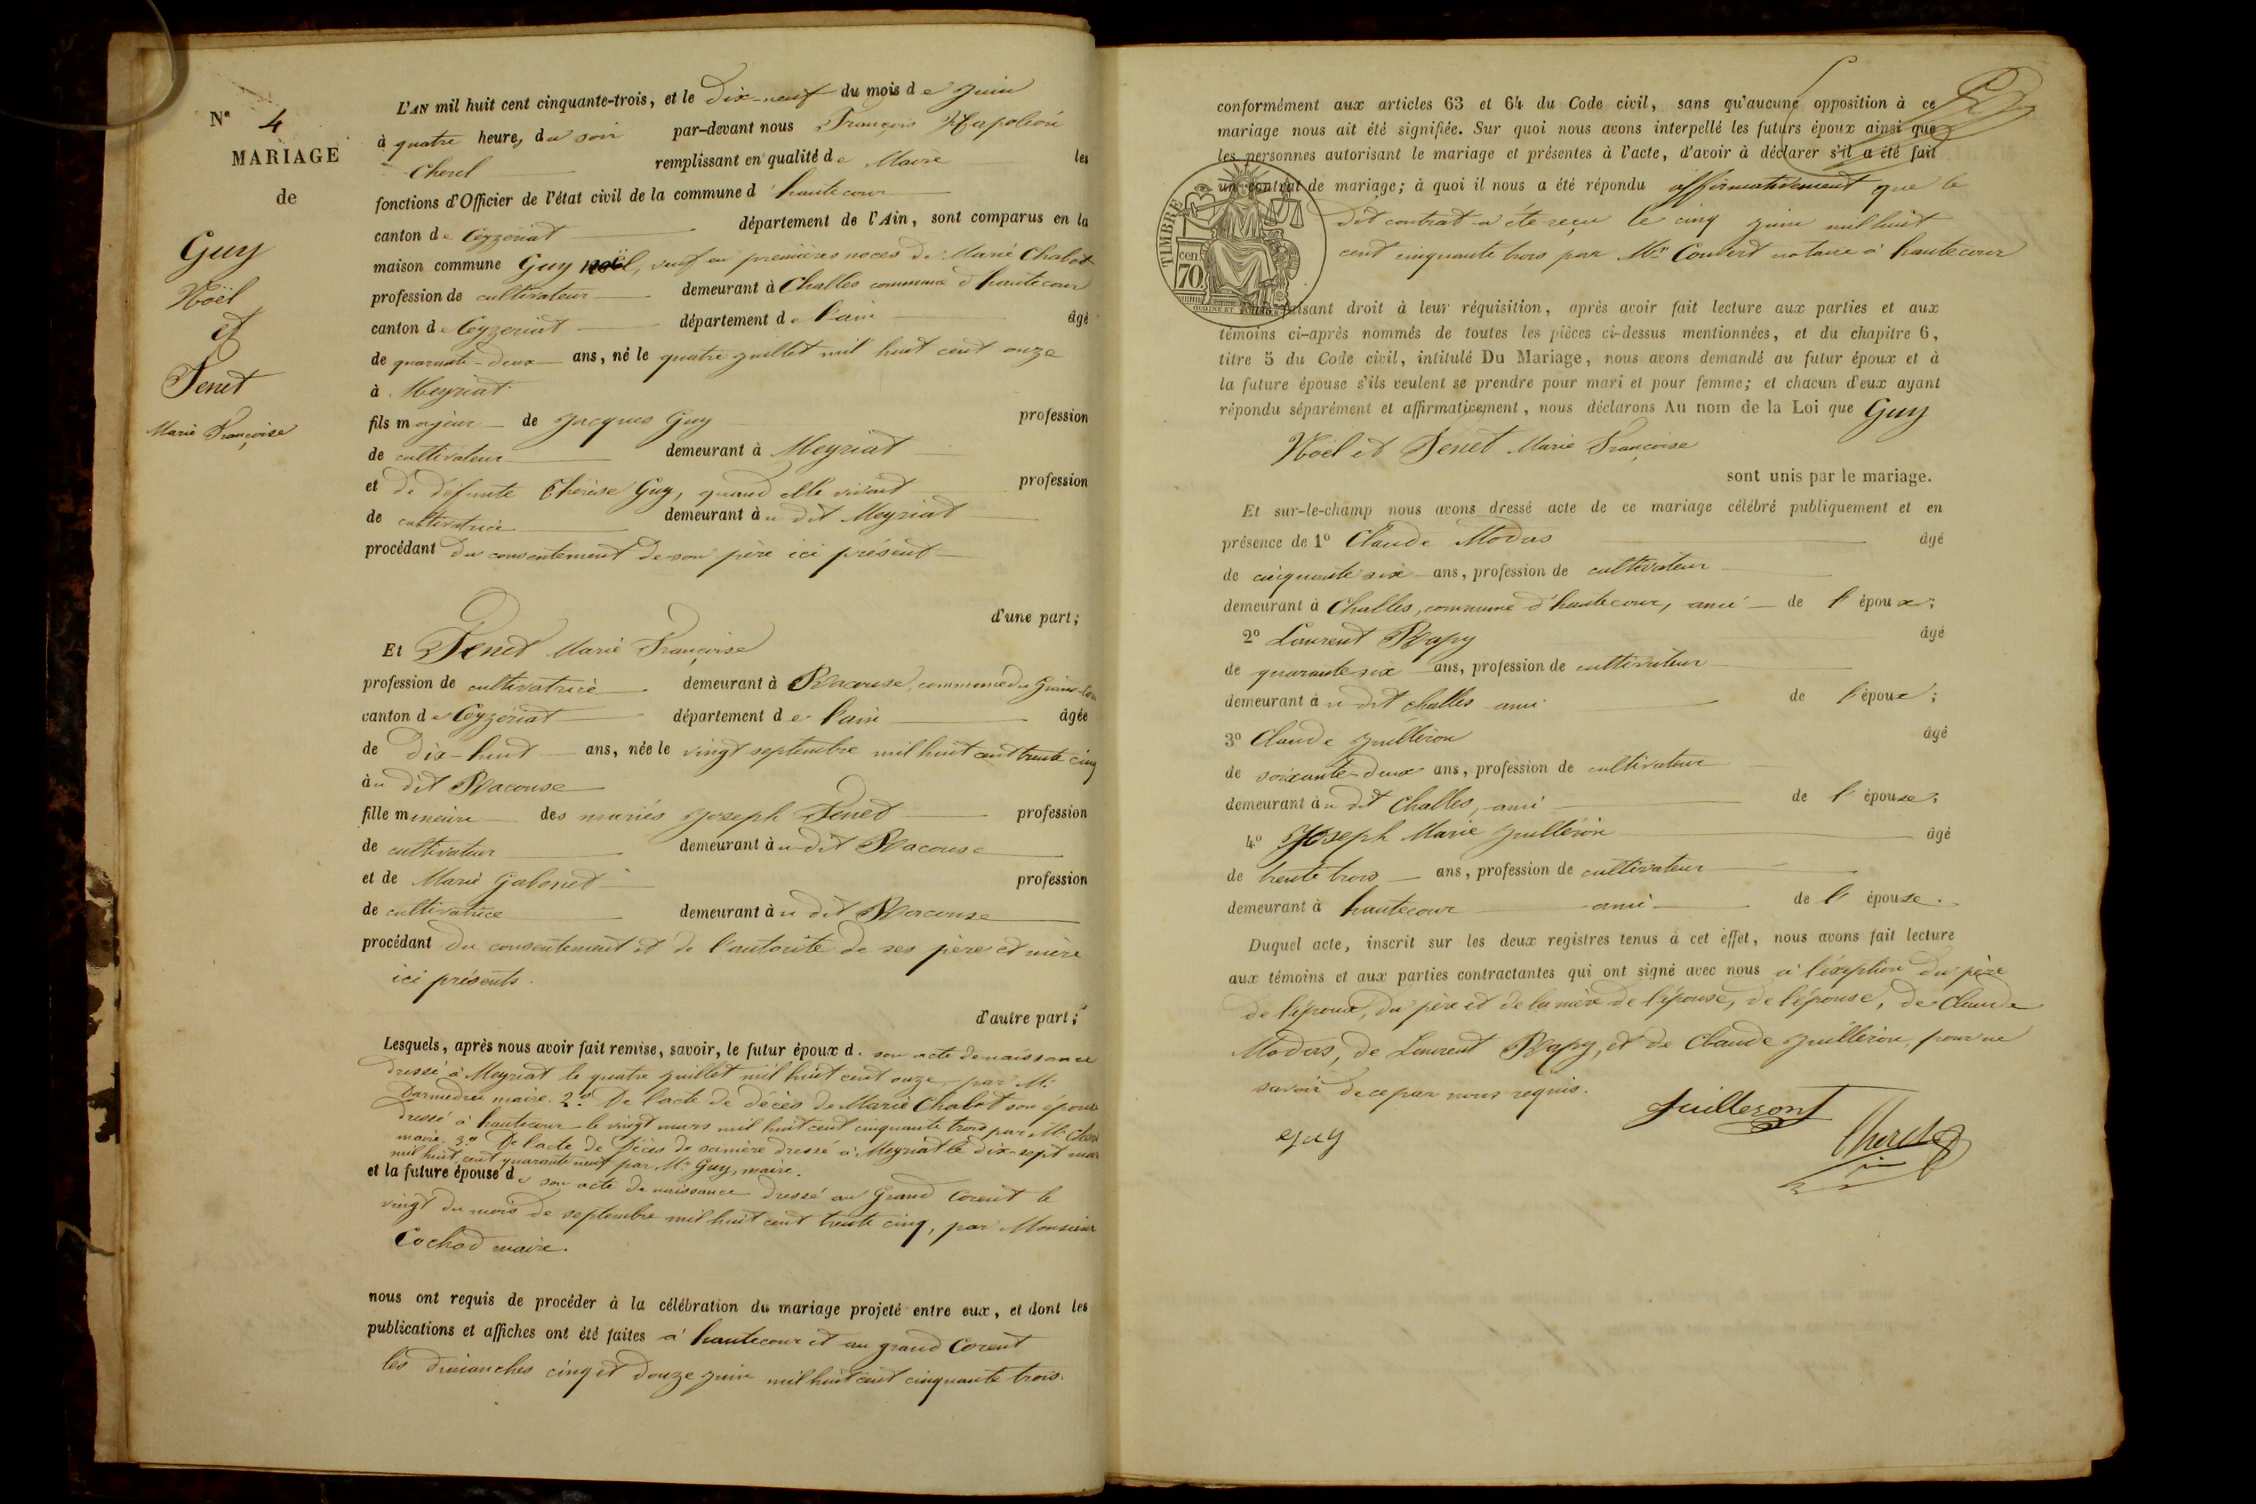 N° 4
MARIAGE
de
Guy
Noël
et
Fenet
Marie Françoise
L'AN mil huit cent cinquante-trois, et le dix-neuf du mois de juin
à quatre heures du soir par-devant nous François Napoléon
Cherel remplissant en qualité de Maire les
fonctions d'Officier de l'état civil de la commune d hautecour
canton de Ceyzeriat département de l'Ain, sont comparus en la
maison commune Guy Noël, veuf en premières noces de Marie Chabot
profession de cultivateur demeurant à Challes commune d'hautecour
canton de Ceyzeriat département de l'ain âgé
de quarante-deux ans, né le quatre juillet mil huit cent onze
à Meyriat
fils majeur de Jacques Guy profession
de cultivateur demeurant à Meyriat
et de défunte Thérèse Guy, quand elle vivait profession
de cultivatrice demeurant au dit Meyriat
procédant du consentement de son père ici présent
d'une part;
Et Fenet Marie Françoise
profession de cultivatrice demeurant à Racouse, commune du
canton de Ceyzériat département de l'ain âgée
de dix-huit ans, née le vingt septembre mil huit cent trente cinq
au dit Racouse
fille mineure des mariés Joseph Fenet profession
de cultivateur demeurant au dit Racouse
et de Marie Gabonet profession
de cultivatrice demeurant au dit Racouse
procédant du consentement et de l'autorité de ses père et mère
ici présents.
d'autre part;
Lesquels, après nous avoir fait remise, savoir, le futur époux d. son acte de naissance
dressé à Meyriat le quatre juillet mil huit cent onze par Mr
maire. 2° De l'acte de décès de Marie Chabot son épouse
dressé à hautecour le vingt mars mil huit cent cinquante trois par Mr Cherel
maire. 3° De l'acte de décès de sa mère dressé à Meyriat le dix-sept mars
mil huit cent quarante neuf par Mr Guy, maire.
et la future épouse de son acte de naissance dressé au Grand Corent le
vingt du mois de septembre mil huit cent trente cinq, par Monsieur
Cochod maire.
nous ont requis de procéder à la célébration du mariage projeté entre eux, et dont les
publications et affiches ont été faites à hautecour et au grand Corent
les dimanches cinq et douze juin mil huit cent cinquante trois.
conformément aux articles 63 et 64 du Code civil, sans qu'aucune opposition à ce
mariage nous ait été signifiée. Sur quoi nous avons interpellé les futurs époux ainsi que
les personnes autorisant le mariage et présentes à l'acte, d'avoir à déclarer s'il a été fait
un contrat de mariage; à quoi il nous a été répondu affirmativement que le
dit contrat a été reçu le cinq juin mil huit
cent cinquante trois par Mr Convert notaire à hautecour
TIMBRE
cen
70
faisant droit à leur réquisition, après avoir fait lecture aux parties et aux
témoins ci-après nommés de toutes les pièces ci-dessus mentionnées, et du chapitre 6,
titre 5 du Code civil, intitulé Du Mariage, nous avons demandé au futur époux et à
la future épouse s'ils veulent se prendre pour mari et pour femme; et chacun d'eux ayant
répondu séparément et affirmativement, nous déclarons Au nom de la Loi que Guy
Noël et Fenet Marie Françoise
sont unis par le mariage.
Et sur-le-champ nous avons dressé acte de ce mariage célébré publiquement et en
présence de 1° Claude Modas âgé
de cinquante six ans, profession de cultivateur
demeurant à Challes, commune d'hautecour, ami de l'époux;
2° Laurent Rapy âgé
de quarante six ans, profession de cultivateur
demeurant au dit challes ami de l'époux;
3° Claude Juilleron âgé
de soixante-deux ans, profession de cultivateur
demeurant au dit Challes, ami de l'épouse;
4° Joseph Marie Juilleron âgé
de trente trois ans, profession de cultivateur
demeurant à hautecour ami de l'épouse.
Duquel acte, inscrit sur les deux registres tenus à cet effet, nous avons fait lecture
aux témoins et aux parties contractantes qui ont signé avec nous à l'exception du père
de l'époux, du père et de la mère de l'épouse, de l'épouse, de Claude
Modas, de Laurent Rapy, et de Claude Juilleron, pour ne
savoir de ce par nous requis.
guy
Juilleront
Cherel